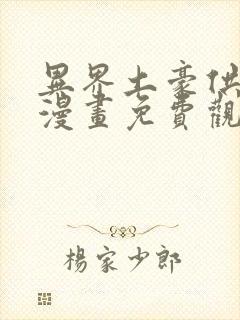 異界土豪供
漫畫免費觀
楊家少郎